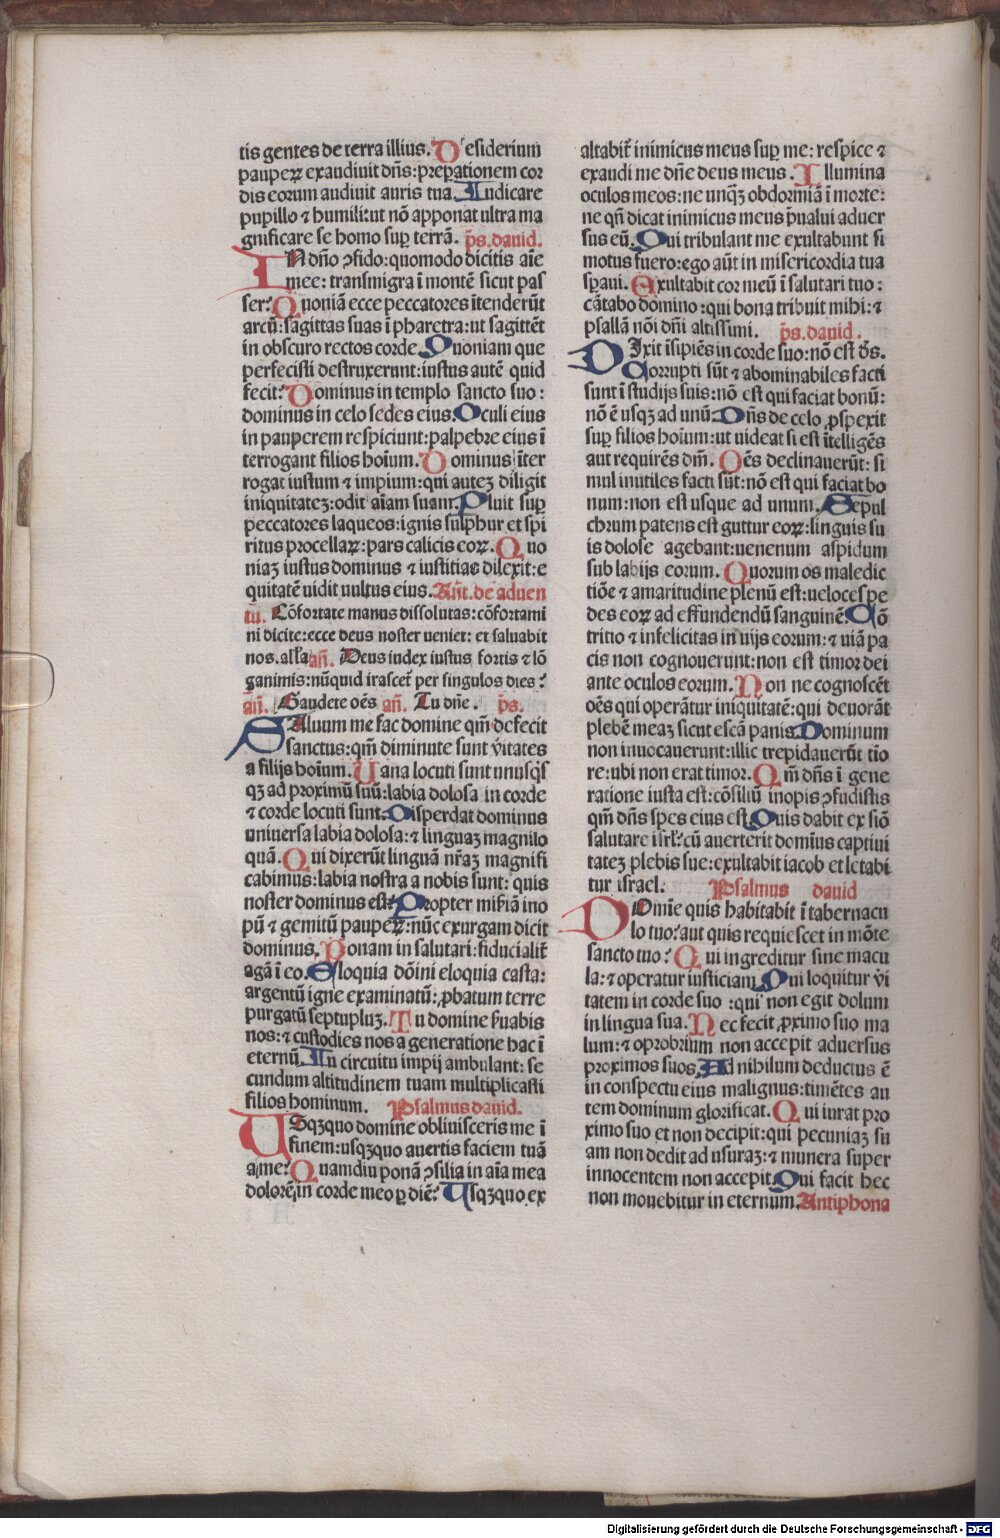 tis gentes de terra illius. Desiderium
pauperꝝ exaudiuit dn̄s: prep̱ationem cor
dis eorum audiuit auris tua. Iudicare
pupillo ⁊ humili: ut nō apponat ultra ma
gnificare se homo sup̱ terrā. p̄s. dauid.
IN dn̄o ↄfido: quomodo dicitis aīe
mee: transmigra ī montē sicut pas
ser? Quoniā ecce peccatores ītenderūt
arcū: sagittas suas ī pharetra: ut sagittēt
in obscuro rectos corde. Quoniam que
perfecisti destruxerunt: iustus autē quid
fecit? Dominus in templo sancto suo:
dominus in celo sedes eius. Oculi eius
in paup̱erem respiciunt: palpebre eius ī
terrogant filios hoīum. Dominus īter
rogat iustum ⁊ impium: qui auteꝫ diligit
iniquitateꝫ: odit aīam suam. Pluit sup̱
peccatores laqueos: ignis sulphur et spi
ritus procellaꝝ: pars calicis eoꝝ. Quo
niaꝫ iustus dominus ⁊ iustitias dilexit: e
quitatē uidit uultus eius. Añt. de aduen
tu. Cōfortate manus dissolutas: cōfortami
ni dicite: ecce deus noster ueniet: et saluabit
nos. all'a añ. Deus iudex iustus fortis ⁊ lō
ganimis: nūquid irascet̄ per singulos dies?
añ. Gaudete oēs añ. Tu dn̄e. p̄s.
SAluum me fac domine qm̄ defecit
sanctus: qm̄ diminute sunt v̄itates
a filijs hoīum. Uana locuti sunt unusq̄s
qꝫ ad proximū suū: labia dolosa in corde
⁊ corde locuti sunt. Disperdat dominus
uniuersa labia dolosa: ⁊ linguaꝫ magnilo
quā. Qui dixerūt linguā nr̄aꝫ magnifi
cabimus: labia nostra a nobis sunt: quis
noster dominus est? Propter mis̄iā ino
pū ⁊ gemitū pauperꝝ: nūc exurgam dicit
dominus. Ponam in salutari: fiducialit̄
agā ī eo. Eloquia dōini eloquia casta:
argentū igne examinatū: ꝓbatum terre
purgatū septupluꝫ. Tu domine s̄uabis
nos: ⁊ custodies nos a generatione hac ī
eternū. In circuitu impij ambulant: se
cundum altitudinem tuam multiplicasti
filios hominum. Psalmus dauid.
USqꝫquo domine obliuisceris me ī
finem: usqꝫquo auertis faciem tuā
a me? Quamdiu ponā ↄsilia in aīa mea
dolorē in corde meo ꝑ diē? Usqꝫquo ex
altabit̄ inimicus meus sup̱ me: respice ⁊
exaudi me dn̄e deus meus. Illumina
oculos meos: ne unqꝫ obdormiā ī morte:
ne qn̄ dicat inimicus meus p̄ualui aduer
sus eū. Qui tribulant me exultabunt si
motus fuero: ego aūt in misericordia tua
sp̱aui. Exultabit cor meū ī salutari tuo:
cātabo domino: qui bona tribuit mihi: ⁊
psallā nōi dn̄i altissimi. p̄s. dauid.
DIxit īsipiēs in corde suo: nō est d̄s.
Corrupti sūt ⁊ abominabiles facti
sunt ī studijs suis: nō est qui faciat bonū:
nō ē usqꝫ ad unū. Dn̄s de celo ꝓspexit
sup̱ filios hoīum: ut uideat si est ītelligēs
aut requirēs dm̄. Oēs declinauerūt: si
mul inutiles facti sūt: nō est qui faciat bo
num: non est usque ad unum. Sepul
chrum patens est guttur eoꝝ: linguis su
is dolose agebant: uenenum aspidum
sub labijs eorum. Quorum os maledic
tiōe ⁊ amaritudine plenū est: ueloces pe
des eoꝝ ad effundendū sanguinē. Cō
tritio ⁊ infelicitas in uijs eorum: ⁊ uiā pa
cis non cognouerunt: non est timor dei
ante oculos eorum. Non ne cognoscēt
oēs qui operātur iniquitatē: qui deuorāt
plebē meaꝫ sicut escā panis. Dominum
non inuocauerunt: illic trepidauerūt tīo
re: ubi non erat timor. Qm̄ dn̄s ī gene
ratione iusta est: cōsiliū inopis ↄfudistis
qm̄ dn̄s spes eius est. Quis dabit ex siō
salutare isrl': cū auerterit domīus captiui
tateꝫ plebis sue: exultabit iacob et letabi
tur israel. Psalmus dauid
DOmīe quis habitabit ī tabernacu
lo tuo? aut quis requiescet in mōte
sancto tuo? Qui ingreditur sine macu
la: ⁊ operatur iusticiam. Qui loquitur v̄i
tatem in corde suo: qui non egit dolum
in lingua sua. Nec fecit ꝓximo suo ma
lum: ⁊ oprobrium non accepit aduersus
proximos suos. Ad nihilum deductus ē
in conspectu eius malignus: timētes au
tem dominum glorificat. Qui iurat pro
ximo suo et non decipit: qui pecuniaꝫ su
am non dedit ad usuraꝫ: ⁊ munera super
innocentem non accepit. Qui facit hec
non mouebitur in eternum. Antiphona
Digitalisierung gefördert durch die Deutsche Forschungsgemeinschaft - DFG